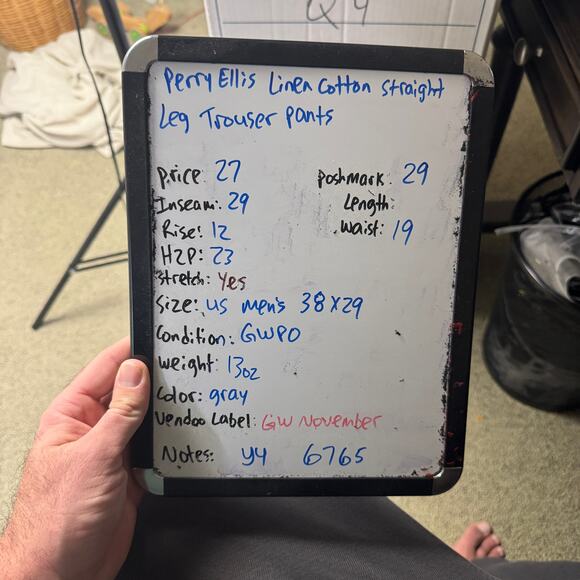 Q4
Perry Ellis Linen Cotton Straight
Leg Trouser Pants
Price: 27
Poshmark: 29
Inseam: 29
Length:
Rise: 12
Waist: 19
H2P: 23
Stretch: Yes
Size: US Men's 38X29
Condition: GWPO
Weight: 13oz
Color: gray
Vendoo Label: GW November
Notes: y4 6765